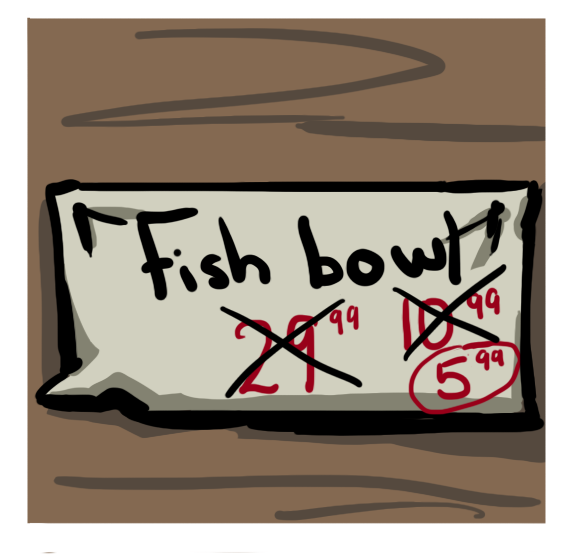 "Fish bowl"
29.99 10.99
5.99